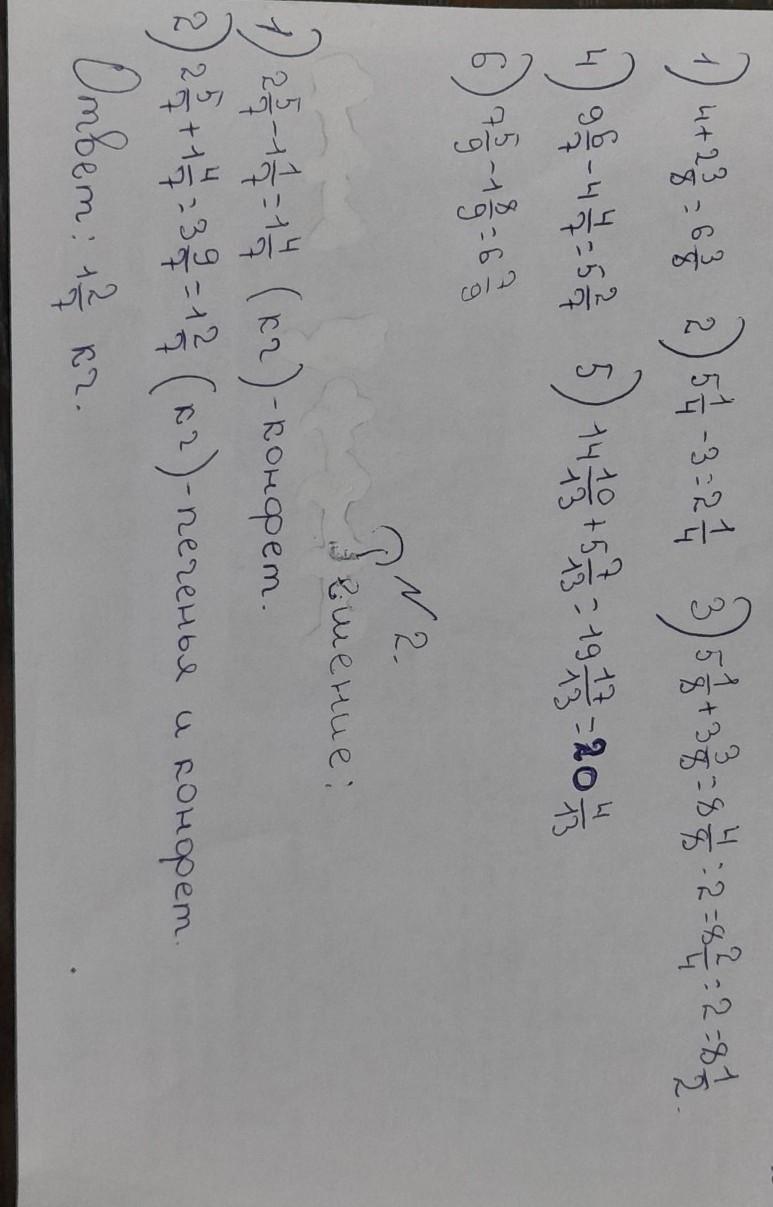 1) 4+2 3/8 = 6 3/8 2) 5 1/4 - 3 = 2 1/4 3) 5 1/8 + 3 3/8 = 8 4/8 : 2 = 8 2/4 : 2 = 8 1/2.
4) 9 6/7 - 4 4/7 = 5 2/7 5) 14 10/13 + 5 7/13 = 19 17/13 = 20 4/13
6) 7 5/9 - 1 8/9 = 6 7/9
N 2.
Решение:
1) 2 5/7 - 1 1/7 = 1 4/7 (кг) - конфет.
2) 2 5/7 + 1 4/7 = 3 9/7 = 1 2/7 (кг) - печенья и конфет.
Ответ: 1 2/7 кг.